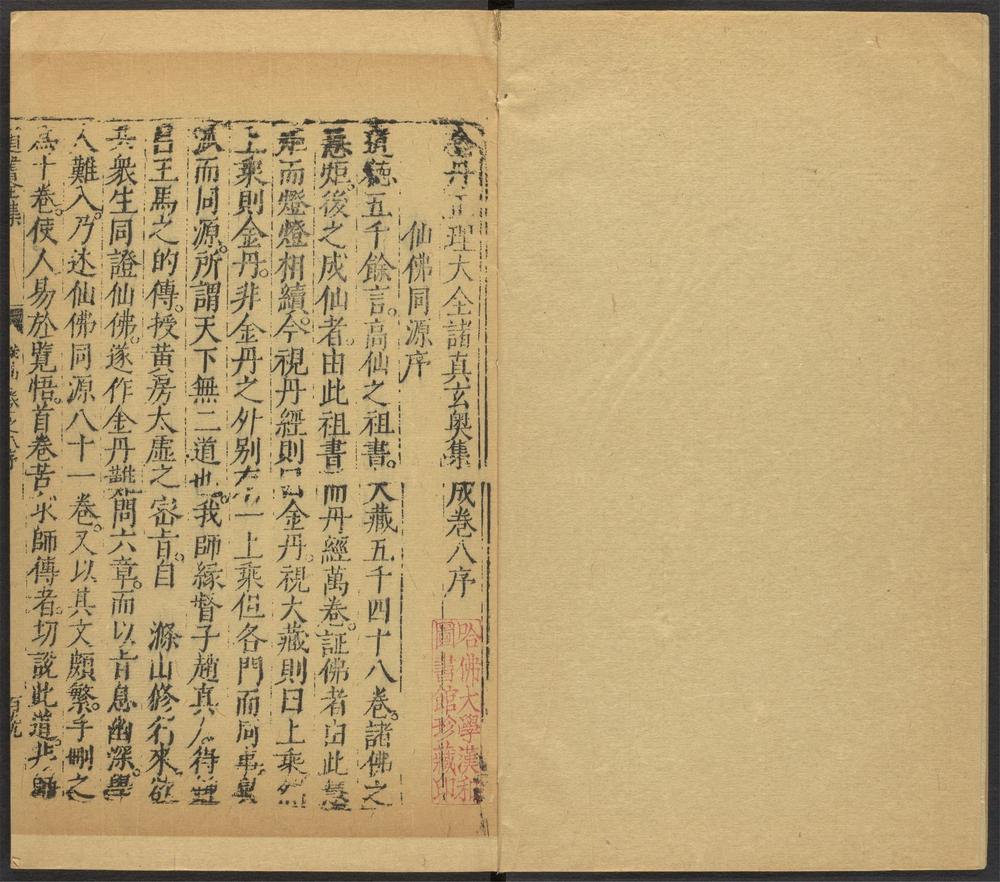 金丹正理大全諸真玄奧集成卷八序
仙佛同源序
道德五千餘言。高仙之祖書。大藏五千四十八卷。諸佛之
慧炬。後之成仙者。由此祖書而丹經萬卷。証佛者由此慧
炬而燈燈相續。今視丹經則曰金丹。視大藏則曰上乘
上乘則金丹。非金丹之外別有一上乘但各門而同事異
派而同源。所謂天下無二道也。我師緣督子趙真人得
呂王馬之的傳。授黃房太虛之密旨自 滌山修行來欲
與衆生同證仙佛。遂作金丹難問六章。而以旨意幽深。學
人難入。乃述仙佛同源八十一卷。又以其文頗繁。手刪之
爲十卷。使人易於覽悟。首卷苦求師傳者。切說此道。非師
哈佛大學漢和
圖書館珍藏印